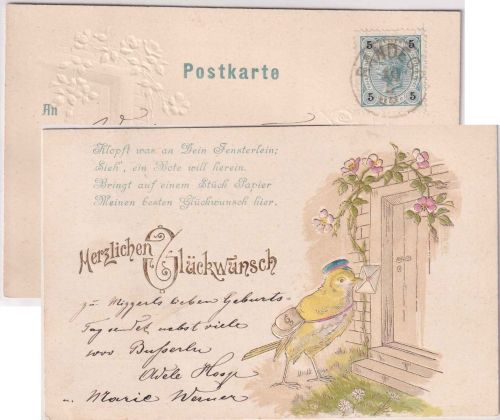 Postkarte
An
5 5
5 5
Klopft was an Dein Fensterlein;
Sieh', ein Bote will herein.
Bringt auf einem Stück Papier
Meinen besten Glückwunsch hier.
Herzlichen Glückwunsch
zu Niggerls lieben Geburts-
Tag sendet nebst viele
1000 Busserln
Adele
u. Marie Werner